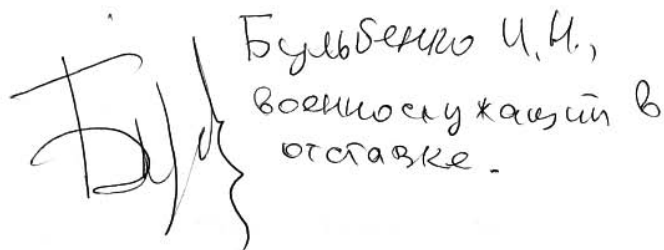 Бульбенко И.И.,
военнослужащий в
отставке.